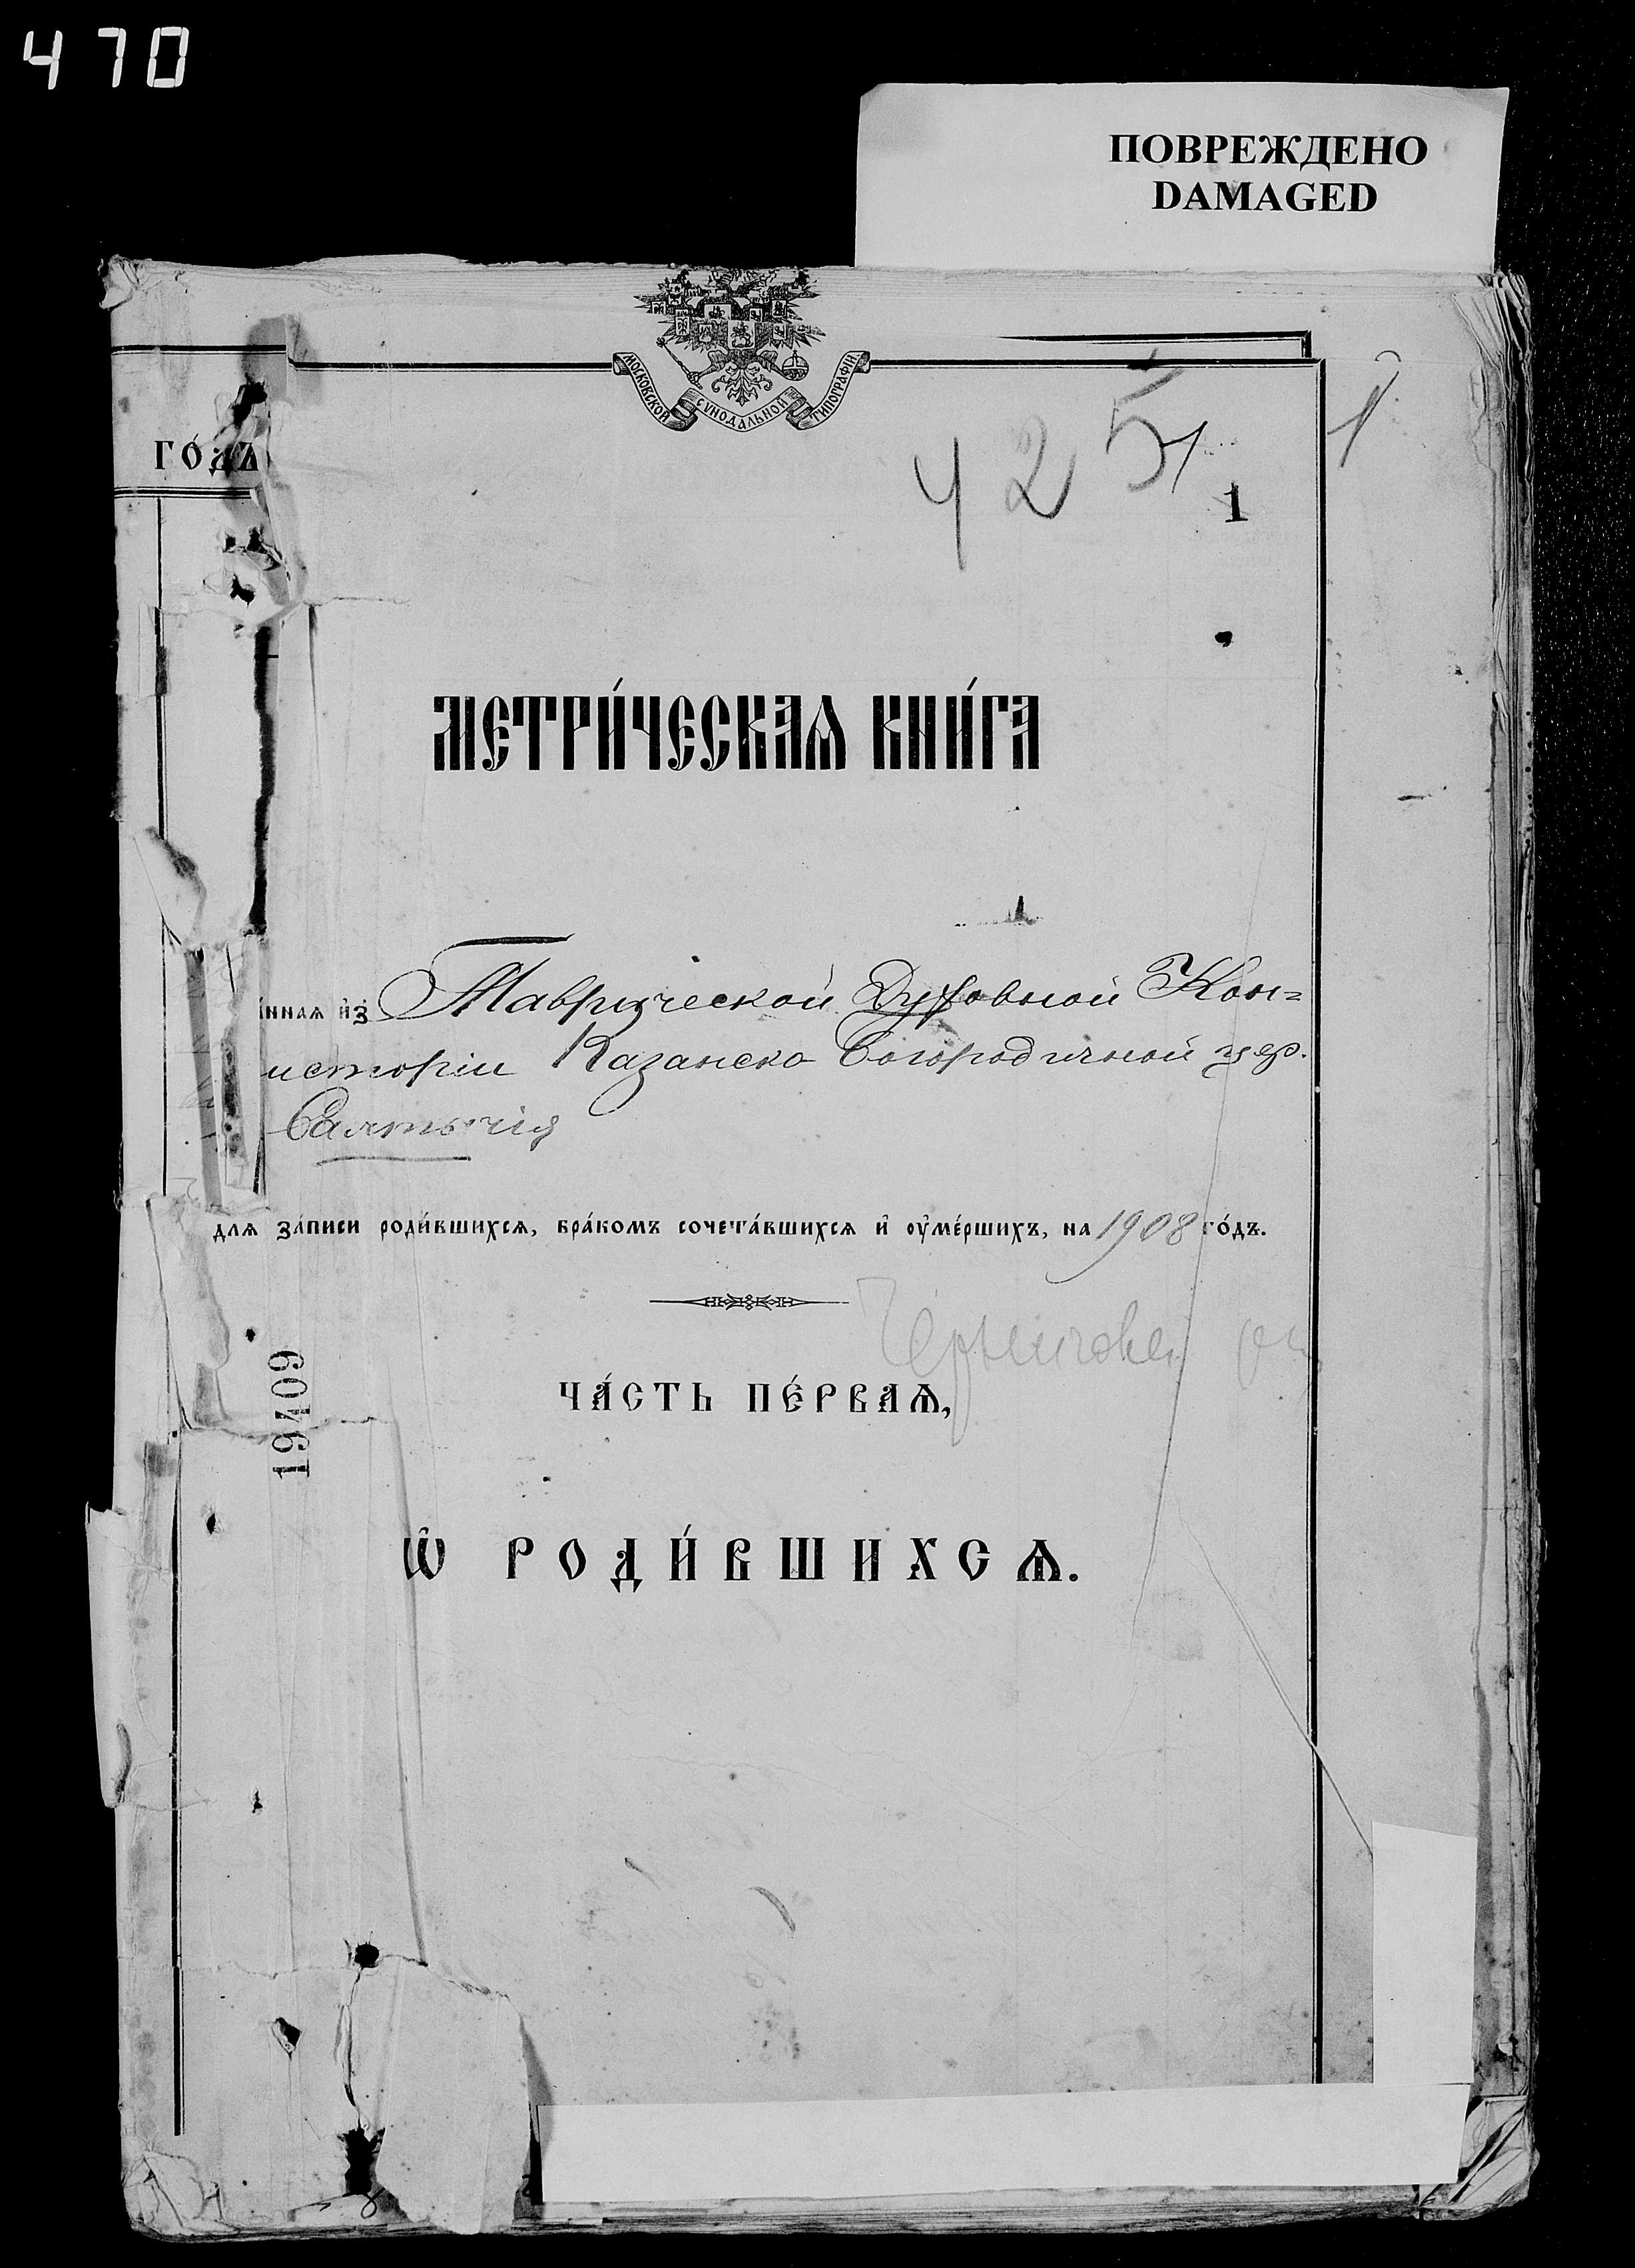 470
ПОВРЕЖДЕНО
DAMAGED
МОСКОВСКОЙ СУНОДАЛЬНОЙ ТИПОГРАФІИ
ГО́ДЪ
425
1
1
МЕТРИ́ЧЕСКАѦ КНИ́ГА
нная и҆з̾ Таврической Духовной Кон=
исторіи Казанско Богородичной цер.
Салтычія
для за́писи роди́вшихся, бра́комъ сочета́вшихся и҆ оу҆ме́ршихъ, на 1908 го́дъ.
ЧА́СТЬ ПЕ́РВАѦ,
19409
Ѡ҆ РОДИ́ВШИХСѦ.